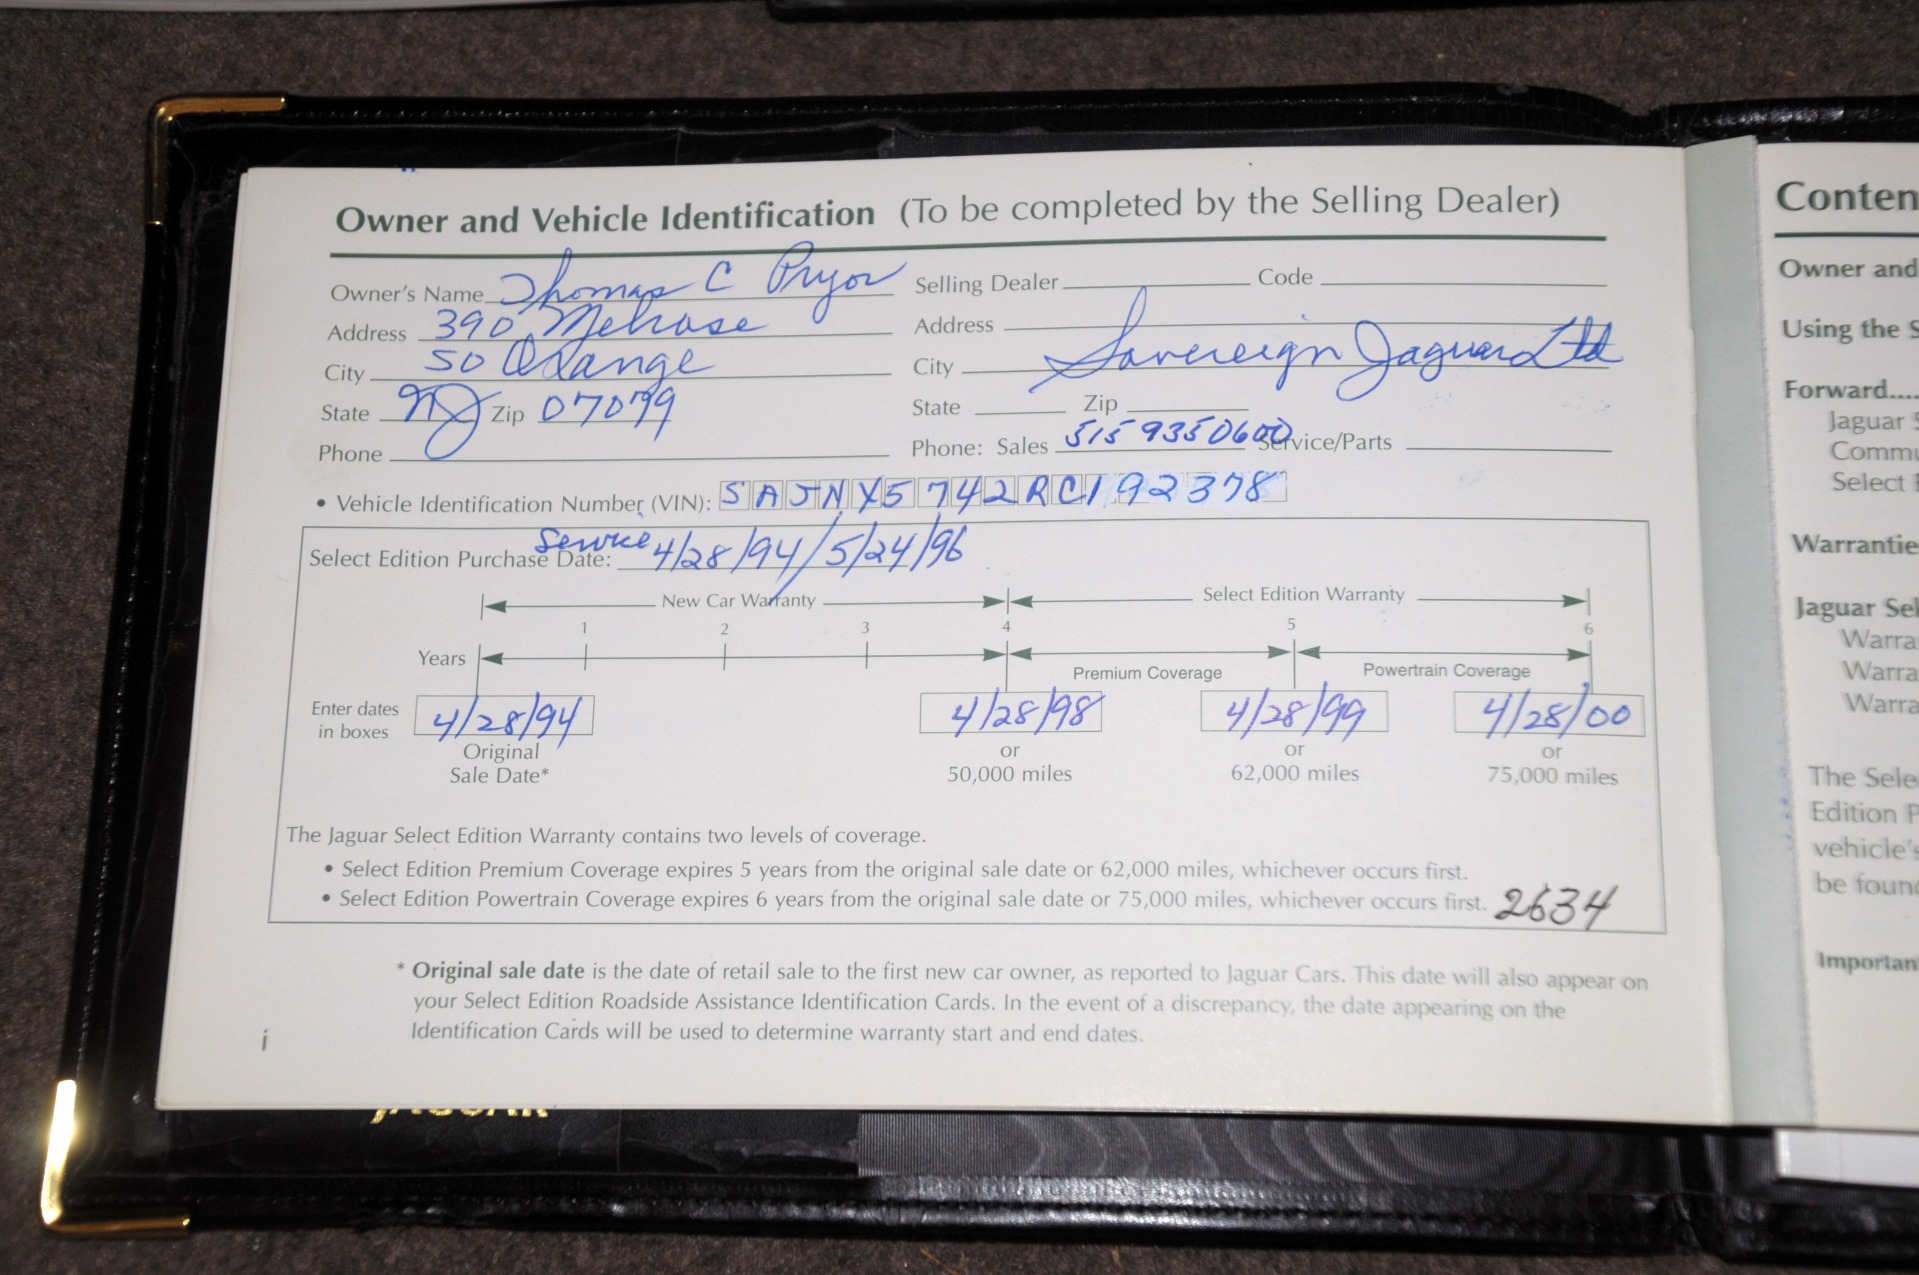 Owner and Vehicle Identification (To be completed by the Selling Dealer)
Owner's Name Thomas C Pryor
Address 390 Melrose
City SO Orange
State NJ Zip 07079
Phone
Selling Dealer Code
Address
City Sovereign Jaguar Ltd
State Zip
Phone: Sales 515 9350600 Service/Parts
• Vehicle Identification Number (VIN): SAJNX5742RC192378
Service
Select Edition Purchase Date: 4/28/94/5/24/96
New Car Warranty Select Edition Warranty
1 2 3 4 5 6
Years
Premium Coverage Powertrain Coverage
Enter dates in boxes 4/28/94 4/28/98 4/28/99 4/28/00
Original or or or
Sale Date* 50,000 miles 62,000 miles 75,000 miles
The Jaguar Select Edition Warranty contains two levels of coverage.
• Select Edition Premium Coverage expires 5 years from the original sale date or 62,000 miles, whichever occurs first.
• Select Edition Powertrain Coverage expires 6 years from the original sale date or 75,000 miles, whichever occurs first. 2634
* Original sale date is the date of retail sale to the first new car owner, as reported to Jaguar Cars. This date will also appear on
your Select Edition Roadside Assistance Identification Cards. In the event of a discrepancy, the date appearing on the
Identification Cards will be used to determine warranty start and end dates.
i
JAGUAR
Conten
Owner and
Using the S
Forward....
Jaguar S
Commu
Select E
Warrantie
Jaguar Sel
Warra
Warra
Warra
The Sele
Edition P
vehicle's
be found
Importan